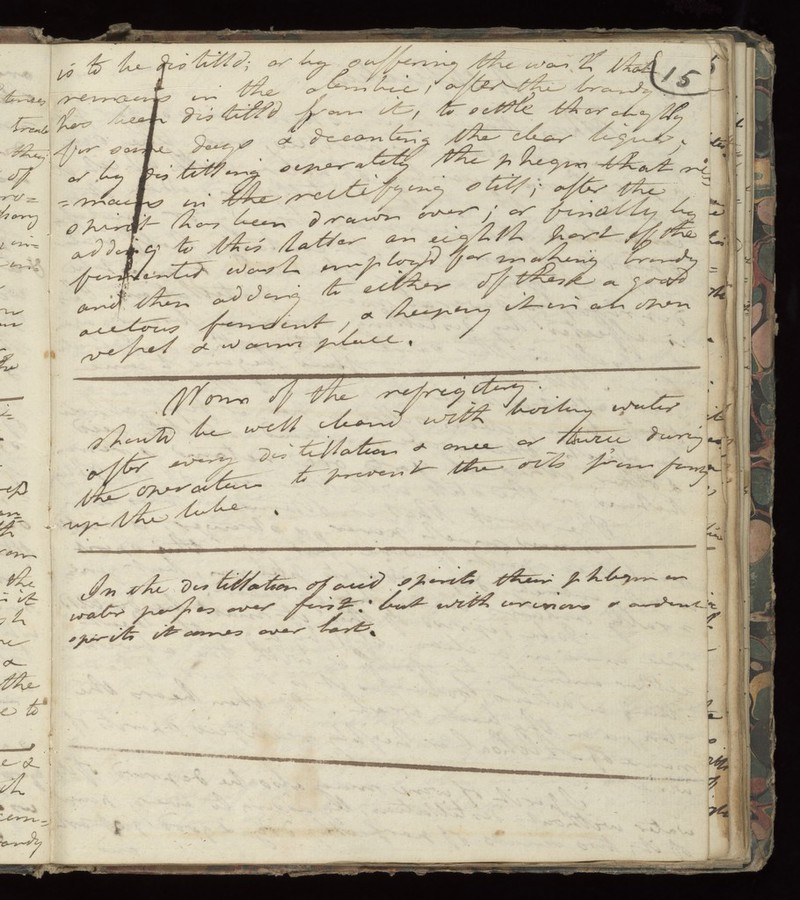 15
is to be distilld; or by suffering the wash that
remains in the alembic, after the brandy
has been distilld from it, to settle thoroughly
for some days & decanting the clear liquor,
or by distilling seperately the phegm that re
=mains in the rectifying still; after the
spirit has been drawn over; or finally by
adding to this latter an eighth part of the
fermented wash employd for making brandy
and then adding to either of these a good
acetous ferment, & keeping it in an open
vessel & warm place.
Worm of the refrigitory.
should be well cleand with boiling water
after every distillation & once or twice during
the operation to prevent the oils from
up the tube.
In the distillation of acid spirits their phlegm or
water passes over first: but with urinous & ardent
spirits it comes over last.